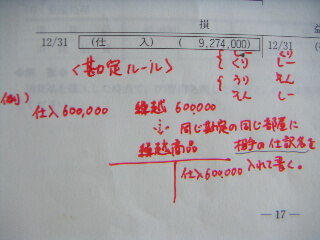 損 益
12/31 (仕 入) ( 9,274,000) 12/31 (
<勘定ルール>
しー くり
くり しー
うり えん
えん しー
例)
仕入 600,000 繰越 600,000
同じ勘定の同じ部屋に
繰越商品 相手の仕訳名を
仕入 600,000 入れて書く。
— 17 —